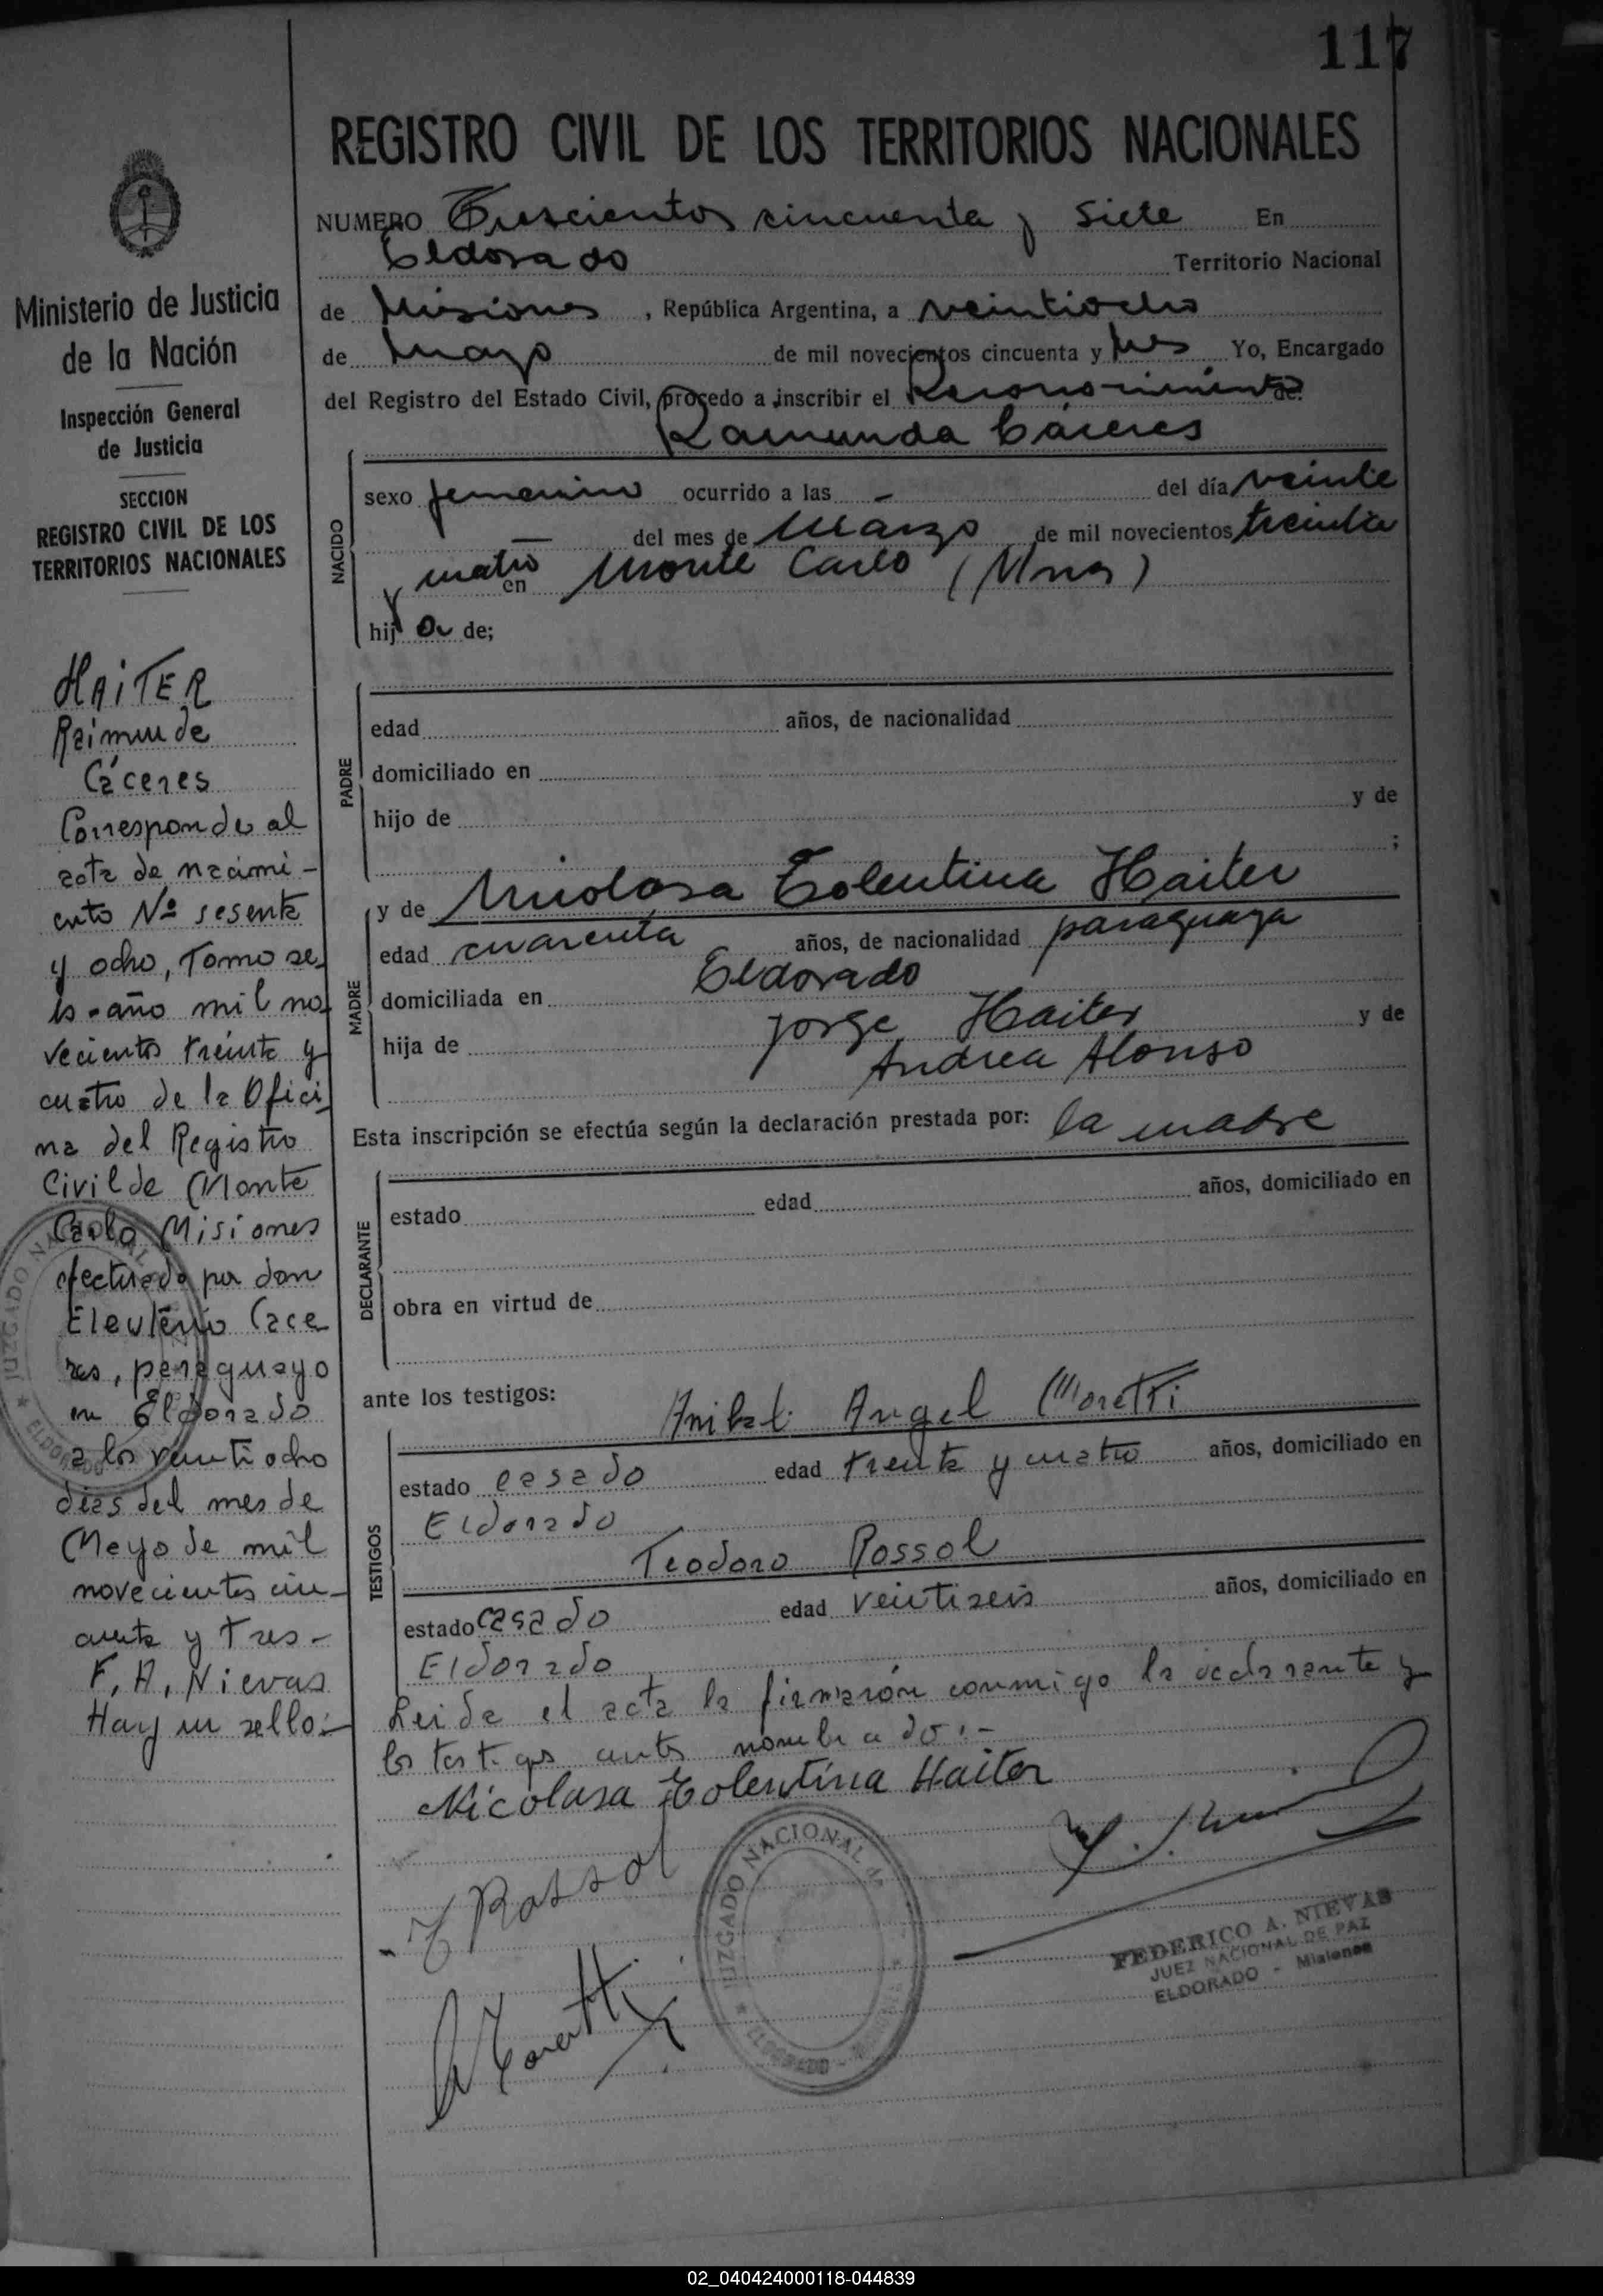 117
REGISTRO CIVIL DE LOS TERRITORIOS NACIONALES
Ministerio de Justicia
de la Nación
Inspección General
de Justicia
SECCION
REGISTRO CIVIL DE LOS
TERRITORIOS NACIONALES
HAITER
Raimunda
Cáceres
Corresponde al
acta de nacimi-
ento Nº sesenta
y ocho, Tomo se
año mil no
vecientos treinta y
cuatro de la Ofici
na del Registro
Civil de Monte
Carlo Misiones
efectuado por don
Eleuterio Cace
res, paraguayo
en Eldorado
a los veintiocho
dias del mes de
Mayo de mil
novecientos cin-
cuenta y tres-
F. A. Nievas
Hay un sello:-
NUMERO Trescientos cincuenta y siete En
Eldorado Territorio Nacional
de Misiones, República Argentina, a veintiocho
de Mayo de mil novecientos cincuenta y tres Yo, Encargado
del Registro del Estado Civil, procedo a inscribir el Reconocimiento de:
Ramunda Cáceres
NACIDO
sexo femenino ocurrido a las - del día veinte
del mes de Marzo de mil novecientos treinta
y cuatro en Monte Carlo (Mnes)
hija de;
PADRE
edad años, de nacionalidad
domiciliado en
hijo de y de
;
MADRE
y de Nicolasa Tolentina Haiter
edad cuarenta años, de nacionalidad paraguaya
domiciliada en Eldorado
hija de Jorge Haiter y de
Andrea Alonso
Esta inscripción se efectúa según la declaración prestada por: la madre
DECLARANTE
estado edad años, domiciliado en
obra en virtud de
ante los testigos: Anibal Angel Moretti
TESTIGOS
estado casado edad treinta y cuatro años, domiciliado en
Eldorado
Teodoro Rossol
estado casado edad veintiseis años, domiciliado en
Eldorado
Leida el acta la firmarón conmigo la declarante y
los testigos antes nombrado:-
Nicolasa Tolentina Haiter
T Rossol
Moretti
JUZGADO NACIONAL
ELDORADO
FEDERICO A. NIEVAS
JUEZ NACIONAL DE PAZ
ELDORADO - Misiones
JUZGADO NACIONAL
ELDORADO
02_040424000118-044839